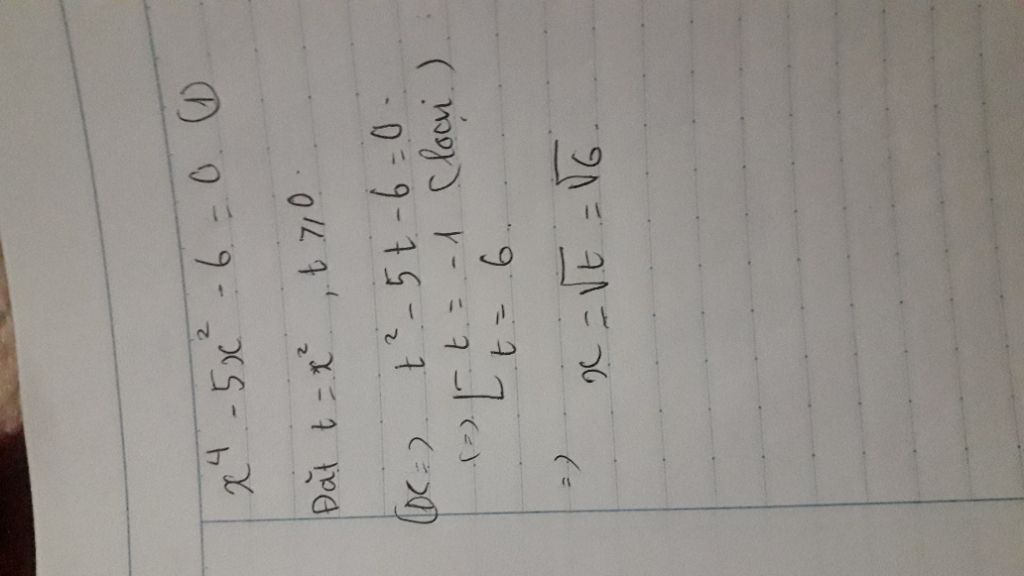 x⁴ - 5x² - 6 = 0 (1)
Đặt t = x², t ≥ 0.
(1) <=> t² - 5t - 6 = 0.
<=> [ t = -1 (loại)
[ t = 6
=> x = √t = √6